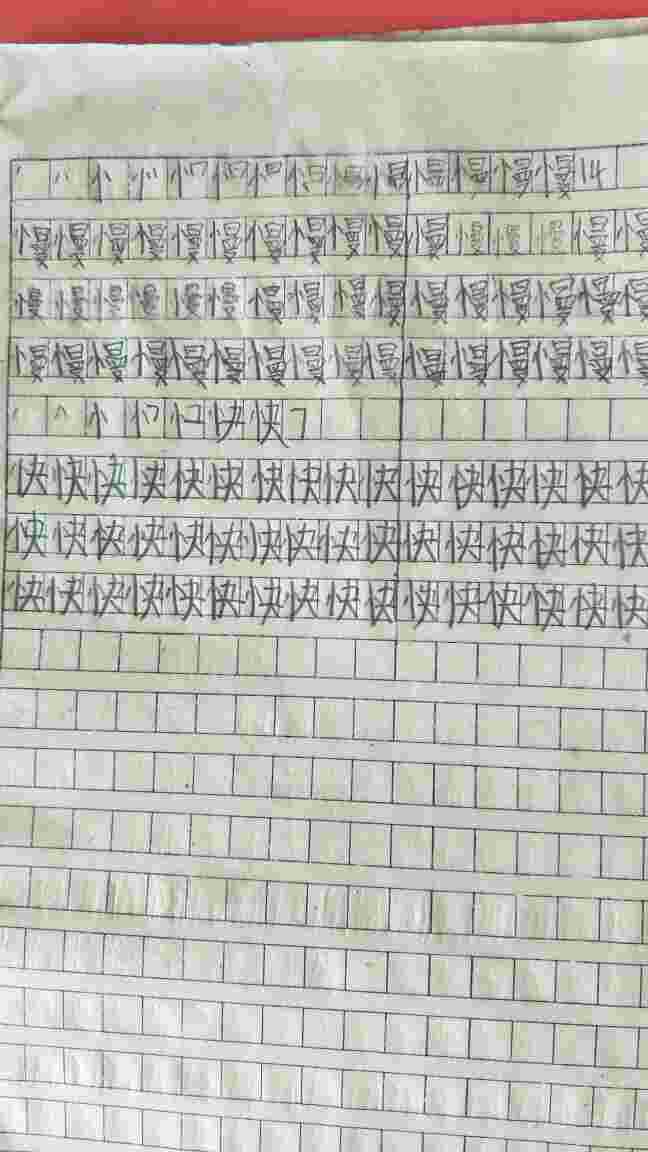 忄慢14
慢慢慢慢慢慢慢慢慢慢慢慢慢慢慢慢
慢慢慢慢慢慢慢慢慢慢慢慢慢慢慢慢
慢慢慢慢慢慢慢慢慢慢慢慢慢慢慢慢
忄快7
快快快快快快快快快快快快快快快快
快快快快快快快快快快快快快快快快
快快快快快快快快快快快快快快快快